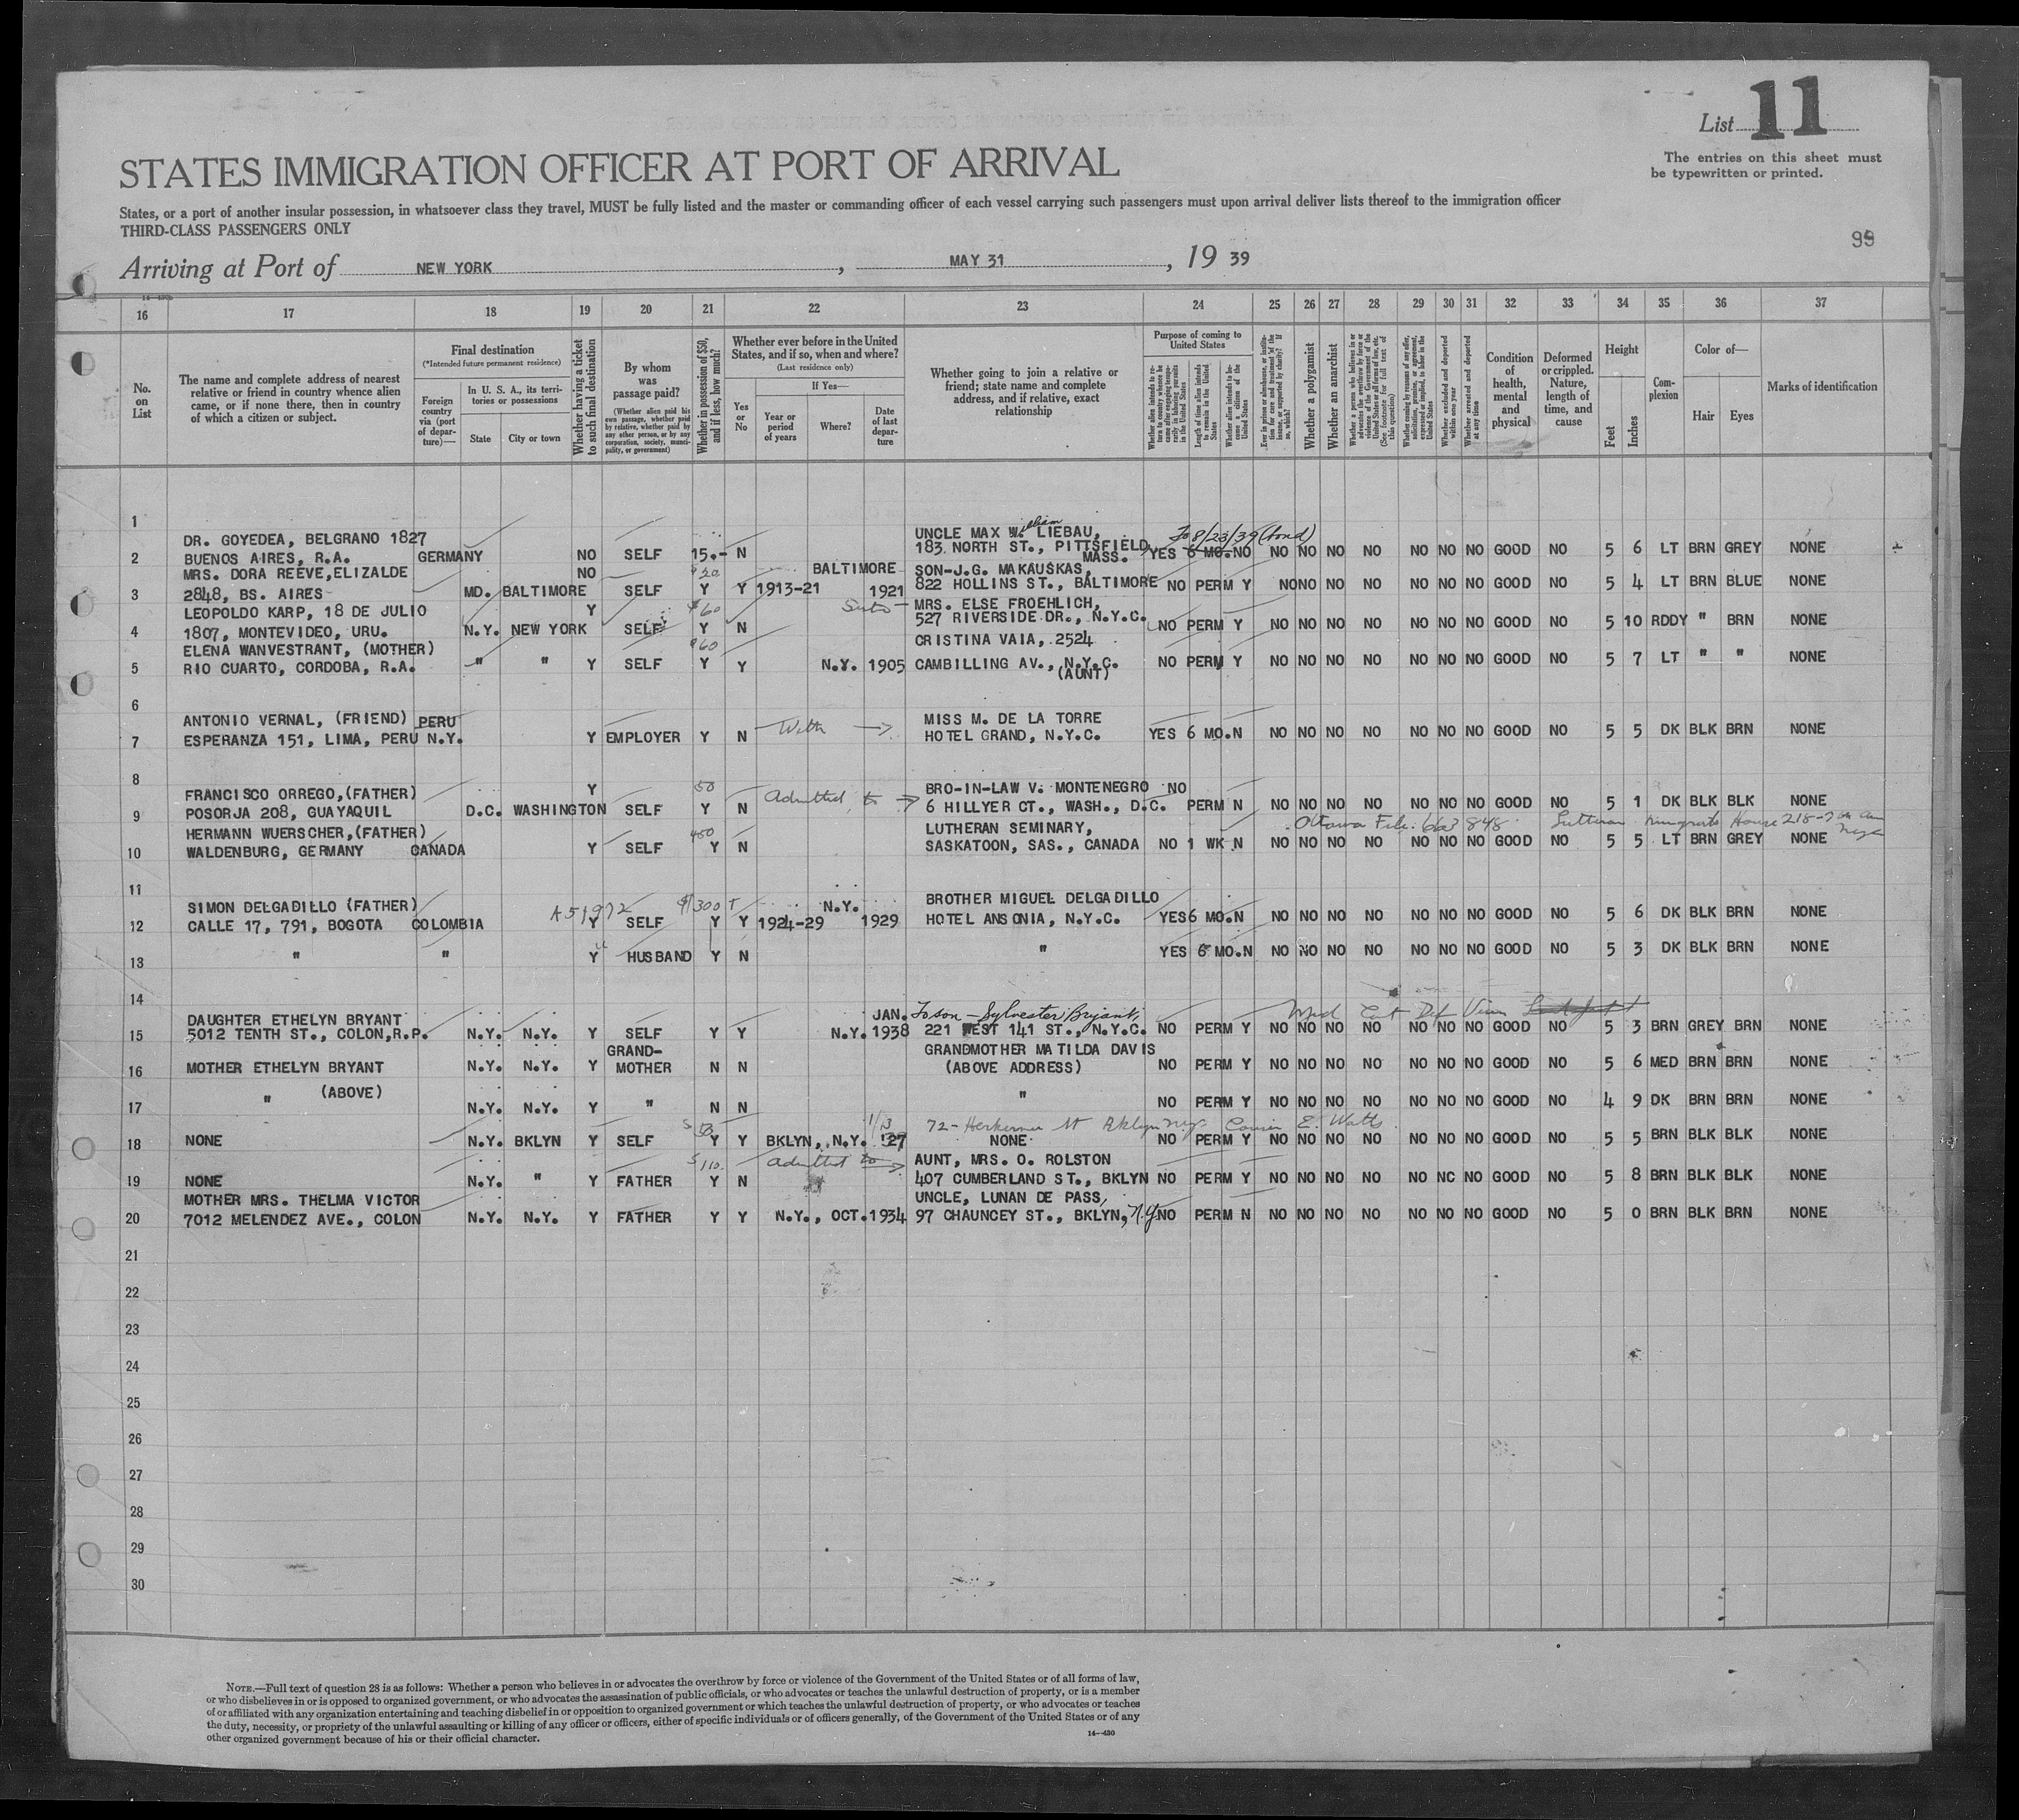 List 11
The entries on this sheet must
be typewritten or printed.
STATES IMMIGRATION OFFICER AT PORT OF ARRIVAL
States, or a port of another insular possession, in whatsoever class they travel, MUST be fully listed and the master or commanding officer of each vessel carrying such passengers must upon arrival deliver lists thereof to the immigration officer
THIRD-CLASS PASSENGERS ONLY
99
Arriving at Port of NEW YORK, MAY 31, 19 39
16 17 18 19 20 21 22 23 24 25 26 27 28 29 30 31 32 33 34 35 36 37
No. on List
The name and complete address of nearest relative or friend in country whence alien came, or if none there, then in country of which a citizen or subject.
Final destination
(*Intended future permanent residence)
Foreign country via (port of departure)—
In U. S. A., its territories or possessions
State
City or town
Whether having a ticket to such final destination
By whom was passage paid?
(Whether alien paid his own passage, whether paid by relative, whether paid by any other person, or by any corporation, society, municipality, or government)
Whether in possession of $50, and if less, how much?
Whether ever before in the United States, and if so, when and where?
(Last residence only)
If Yes—
Yes or No
Year or period of years
Where?
Date of last departure
Whether going to join a relative or friend; state name and complete address, and if relative, exact relationship
Purpose of coming to United States
Whether alien intends to return to country whence he came after engaging temporarily in laboring pursuits in the United States
Length of time alien intends to remain in the United States
Whether alien intends to become a citizen of the United States
Whether a polygamist
Whether an anarchist
Whether excluded and deported within one year
Whether arrested and deported at any time
Condition of health, mental and physical
Deformed or crippled. Nature, length of time, and cause
Height
Feet
Inches
Complexion
Color of—
Hair
Eyes
Marks of identification
1
DR. GOYEDEA, BELGRANO 1827 UNCLE MAX William LIEBAU, To 8/23/39 (bond)
2 BUENOS AIRES, R.A. GERMANY NO SELF 15.- N 183 NORTH ST., PITTSFIELD, MASS. YES 6 MO. NO NO NO NO NO NO NO NO GOOD NO 5 6 LT BRN GREY NONE
MRS. DORA REEVE, ELIZALDE NO $20 BALTIMORE SON-J.G. MAKAUSKAS,
3 2848, BS. AIRES MD. BALTIMORE SELF Y Y 1913-21 1921 822 HOLLINS ST., BALTIMORE NO PERM Y NO NO NO NO NO NO NO GOOD NO 5 4 LT BRN BLUE NONE
LEOPOLDO KARP, 18 DE JULIO Y $60 MRS. ELSE FROEHLICH,
4 1807, MONTEVIDEO, URU. N.Y. NEW YORK SELF Y N 527 RIVERSIDE DR., N.Y.C. NO PERM Y NO NO NO NO NO NO NO GOOD NO 5 10 RDDY " BRN NONE
ELENA WANVESTRANT, (MOTHER) $60 CRISTINA VAIA, 2524
5 RIO CUARTO, CORDOBA, R.A. " " Y SELF Y Y N.Y. 1905 CAMBILLING AV., N.Y.C. NO PERM Y NO NO NO NO NO NO NO GOOD NO 5 7 LT " " NONE
(AUNT)
6
ANTONIO VERNAL, (FRIEND) PERU With MISS M. DE LA TORRE
7 ESPERANZA 151, LIMA, PERU N.Y. Y EMPLOYER Y N HOTEL GRAND, N.Y.C. YES 6 MO. N NO NO NO NO NO NO NO GOOD NO 5 5 DK BLK BRN NONE
8
FRANCISCO ORREGO, (FATHER) Y 50 Admitted to BRO-IN-LAW V. MONTENEGRO NO
9 POSORJA 208, GUAYAQUIL D.C. WASHINGTON SELF Y N 6 HILLYER CT., WASH., D.C. PERM N NO NO NO NO NO NO NO GOOD NO 5 1 DK BLK BLK NONE
HERMANN WUERSCHER, (FATHER) 450 LUTHERAN SEMINARY, Ottawa File: 663848 Lutheran Immigrants House 218-7th
10 WALDENBURG, GERMANY CANADA Y SELF Y N SASKATOON, SAS., CANADA NO 1 WK N NO NO NO NO NO NO NO GOOD NO 5 5 LT BRN GREY NONE
11
SIMON DELGADILLO (FATHER) A51972 $1300 T N.Y. BROTHER MIGUEL DELGADILLO
12 CALLE 17, 791, BOGOTA COLOMBIA Y SELF Y Y 1924-29 1929 HOTEL ANSONIA, N.Y.C. YES 6 MO. N NO NO NO NO NO NO NO GOOD NO 5 6 DK BLK BRN NONE
13 " " Y HUSBAND Y N " YES 6 MO. N NO NO NO NO NO NO NO GOOD NO 5 3 DK BLK BRN NONE
14
DAUGHTER ETHELYN BRYANT JAN. To son - Sylvester Bryant, Med Cert Def Vision
15 5012 TENTH ST., COLON, R.P. N.Y. N.Y. Y SELF Y Y N.Y. 1938 221 WEST 141 ST., N.Y.C. NO PERM Y NO NO NO NO NO NO NO GOOD NO 5 3 BRN GREY BRN NONE
GRAND- GRANDMOTHER MATILDA DAVIS
16 MOTHER ETHELYN BRYANT N.Y. N.Y. Y MOTHER N N (ABOVE ADDRESS) NO PERM Y NO NO NO NO NO NO NO GOOD NO 5 6 MED BRN BRN NONE
17 " (ABOVE) N.Y. N.Y. Y " N N " NO PERM Y NO NO NO NO NO NO NO GOOD NO 4 9 DK BRN BRN NONE
$ 53 1/13 72 - Herkermer St Bklyn NY Cousin E. Watts
18 NONE N.Y. BKLYN Y SELF Y Y BKLYN, N.Y. '27 NONE NO PERM Y NO NO NO NO NO NO NO GOOD NO 5 5 BRN BLK BLK NONE
$110 admitted to AUNT, MRS. O. ROLSTON
19 NONE N.Y. " Y FATHER Y N 407 CUMBERLAND ST., BKLYN NO PERM Y NO NO NO NO NO NC NO GOOD NO 5 8 BRN BLK BLK NONE
MOTHER MRS. THELMA VICTOR UNCLE, LUNAN DE PASS,
20 7012 MELENDEZ AVE., COLON N.Y. N.Y. Y FATHER Y Y N.Y., OCT. 1934 97 CHAUNCEY ST., BKLYN, N.Y. NO PERM N NO NO NO NO NO NO NO GOOD NO 5 0 BRN BLK BRN NONE
21
22
23
24
25
26
27
28
29
30
NOTE.—Full text of question 28 is as follows: Whether a person who believes in or advocates the overthrow by force or violence of the Government of the United States or of all forms of law,
or who disbelieves in or is opposed to organized government, or who advocates the assassination of public officials, or who advocates or teaches the unlawful destruction of property, or is a member
of or affiliated with any organization entertaining and teaching disbelief in or opposition to organized government or which teaches the unlawful destruction of property, or who advocates or teaches
the duty, necessity, or propriety of the unlawful assaulting or killing of any officer or officers, either of specific individuals or of officers generally, of the Government of the United States or of any
other organized government because of his or their official character.
14—430